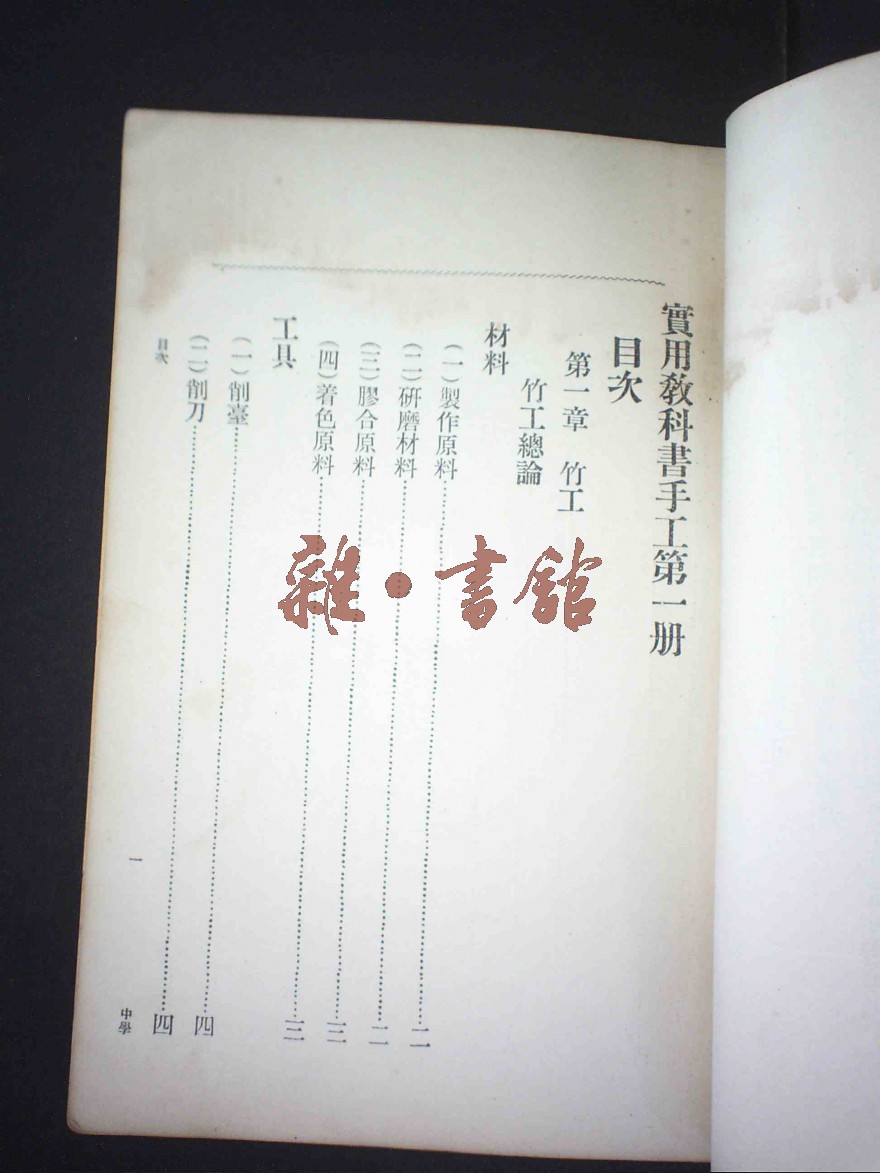 實用教科書手工第一册
目次
第一章　竹工
竹工總論
材料
(一)製作原料……二
(二)研磨材料……二
(三)膠合原料……三
(四)着色原料……三
工具
(一)削臺……四
(二)削刀……四
目次
一
中學
雜·書館